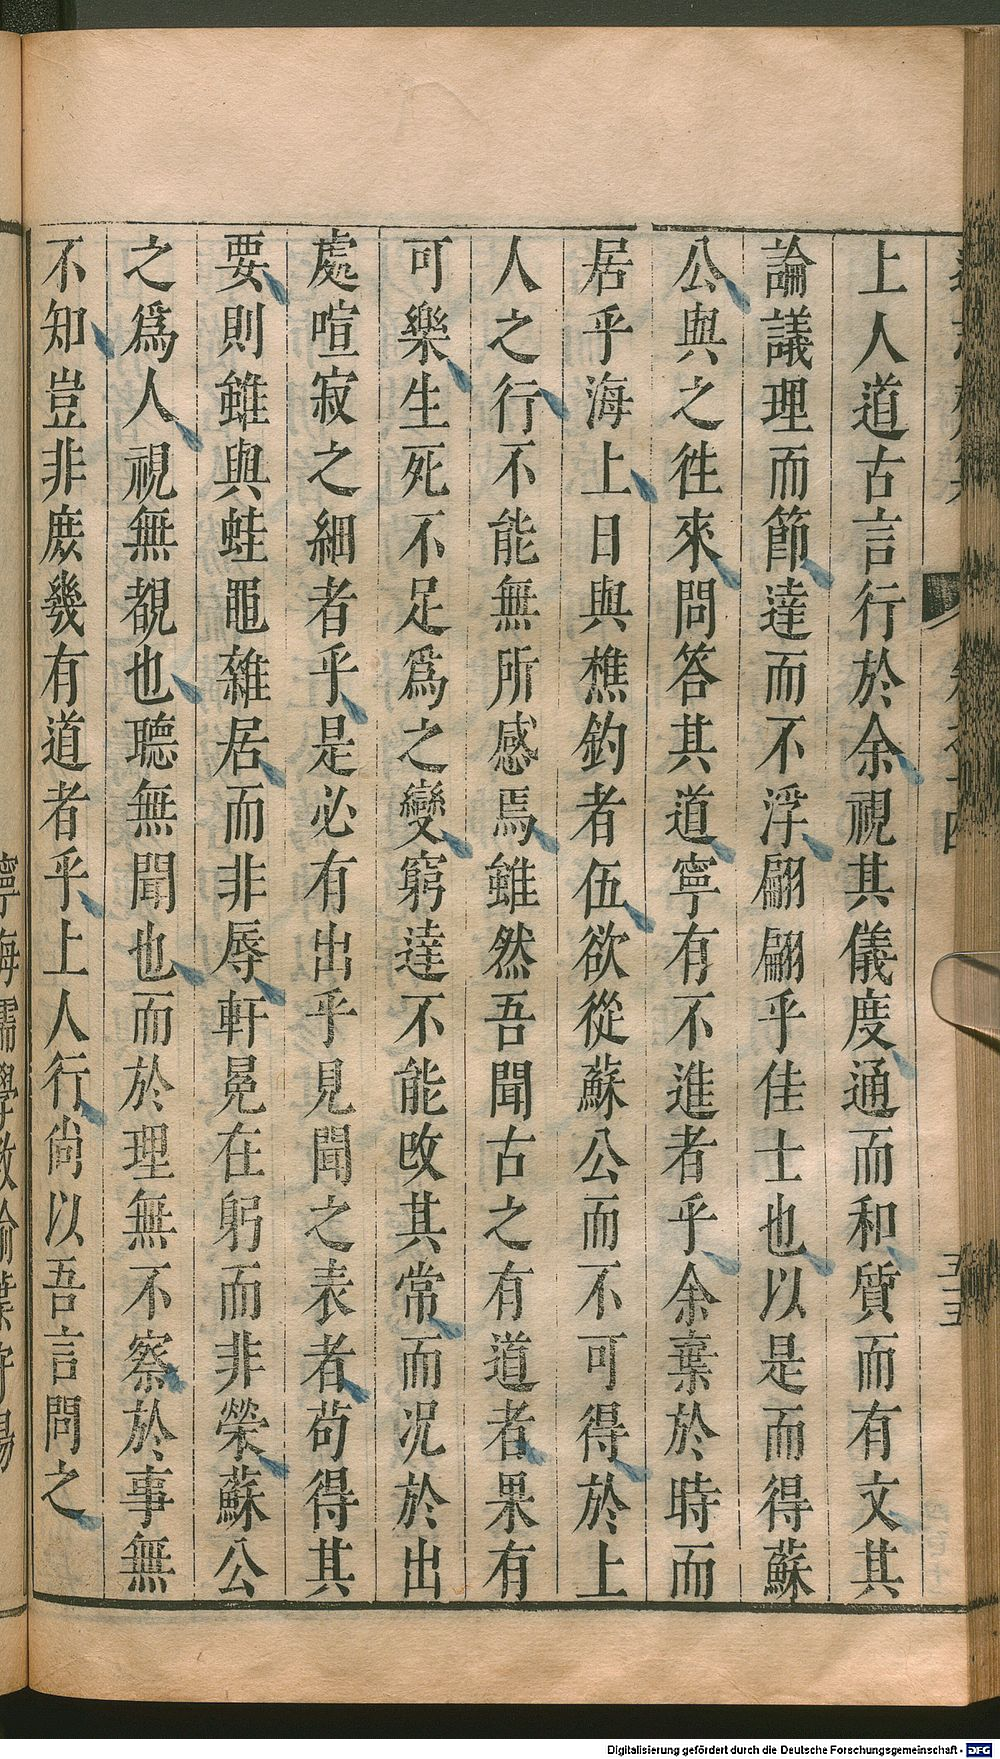 上人道古言行於余視其儀度通而和質而有文其
論議理而節達而不浮翩翩乎佳士也以是而得蘇
公與之徃來問答其道寧有不進者乎余棄於時而
居乎海上日與樵釣者伍欲從蘇公而不可得於上
人之行不能無所感焉雖然吾聞古之有道者果有
可樂生死不足爲之變窮達不能改其常而况於出
處喧寂之細者乎是必有出乎見聞之表者苟得其
要則雖與蛙黽雜居而非辱軒冕在躬而非榮蘇公
之爲人視無覩也聽無聞也而於理無不察於事無
不知豈非庶幾有道者乎上人行尚以吾言問之
寧海儒學敎諭葉
Digitalisierung gefördert durch die Deutsche Forschungsgemeinschaft - DFG